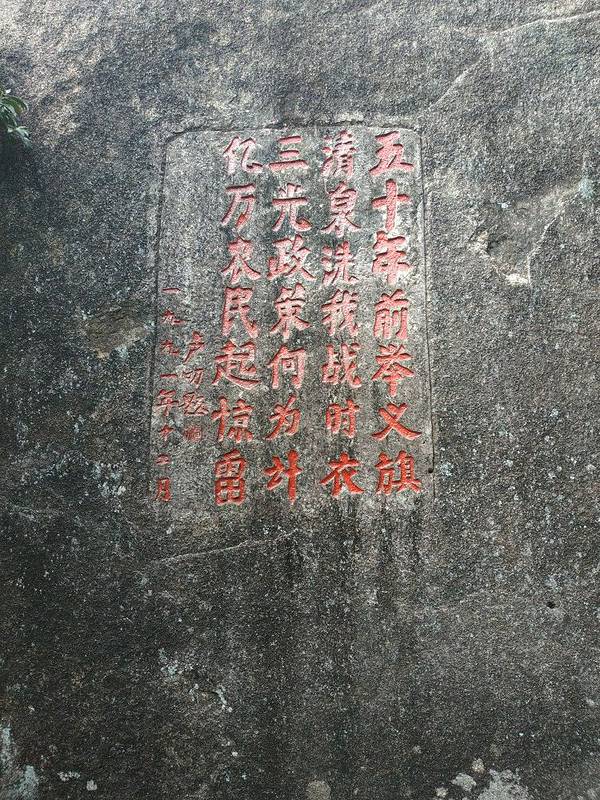 五十年前举义旗
清泉洗我战时衣
三光政策何为计
亿万农民起惊雷
一九九一年十二月